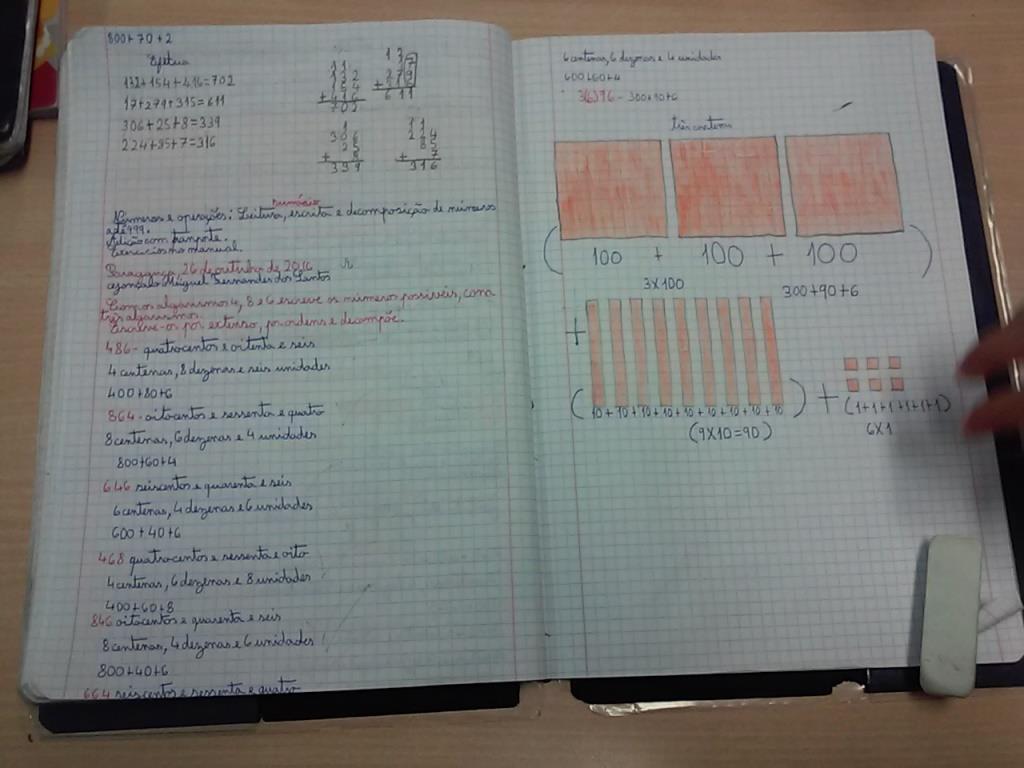 800+70+2
Efetua
132+154+416=702
17+279+315=611
306+25+8=339
224+85+7=316
11
132
154
+416
702
12
17
279
+315
611
1
306
25
+ 8
339
11
224
85
+ 7
316
Sumário
Números e operações: Leitura, escrita e decomposição de números
até 999.
Adição com transporte.
Exercícios no manual.
26 de outubro de 2016
Miguel Fernandes dos Santos
Com os algarismos 4, 8 e 6 escreve os números possíveis, com
três algarismos.
Escreve-os por extenso, por ordens e decompõe.
486- quatrocentos e oitenta e seis
4 centenas, 8 dezenas e seis unidades
400+80+6
864- oitocentos e sessenta e quatro
8 centenas, 6 dezenas e 4 unidades
800+60+4
646 seiscentos e quarenta e seis
6 centenas, 4 dezenas e 6 unidades
600+40+6
468 quatrocentos e sessenta e oito
4 centenas, 6 dezenas e 8 unidades
400+60+8
846 oitocentos e quarenta e seis
8 centenas, 4 dezenas e 6 unidades
800+40+6
664 seiscentos e sessenta e quatro
6 centenas, 6 dezenas e 4 unidades
600+60+4
396 - 300+90+6
três
( 100 + 100 + 100 )
3X100
300+90+6
+
(10+10+10+10+10+10+10+10+10) + (1+1+1+1+1+1)
(9X10=90)
6X1